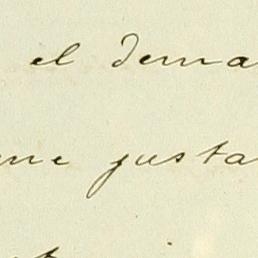 el dema
me justa